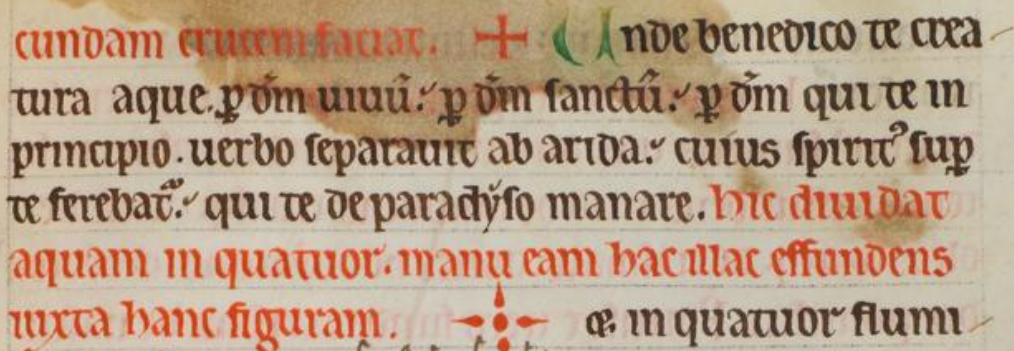 cundam crucem faciat. + Unde benedico te crea
tura aque. ꝑ dm̄ uiuū. ꝑ dm̄ sanctū. ꝑ dm̄ qui te in
principio. uerbo separauit ab arida. cuius spiritꝰ suꝑ
te ferebat᷑. qui te de paradẏso manare. hic diuidat
aquam in quatuor. manu eam hac illac effundens
iuxta hanc figuram. & in quatuor flumi